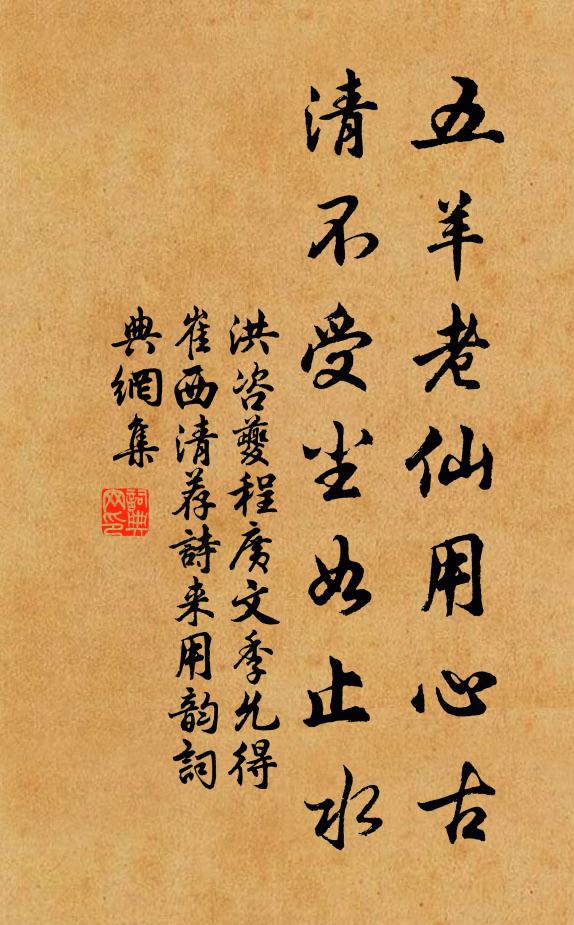 五羊老仙用心古
清不受尘如止水
洪咨夔程廣文季允得
崔西清荐詩来用韵詞
典網集
詞典網印